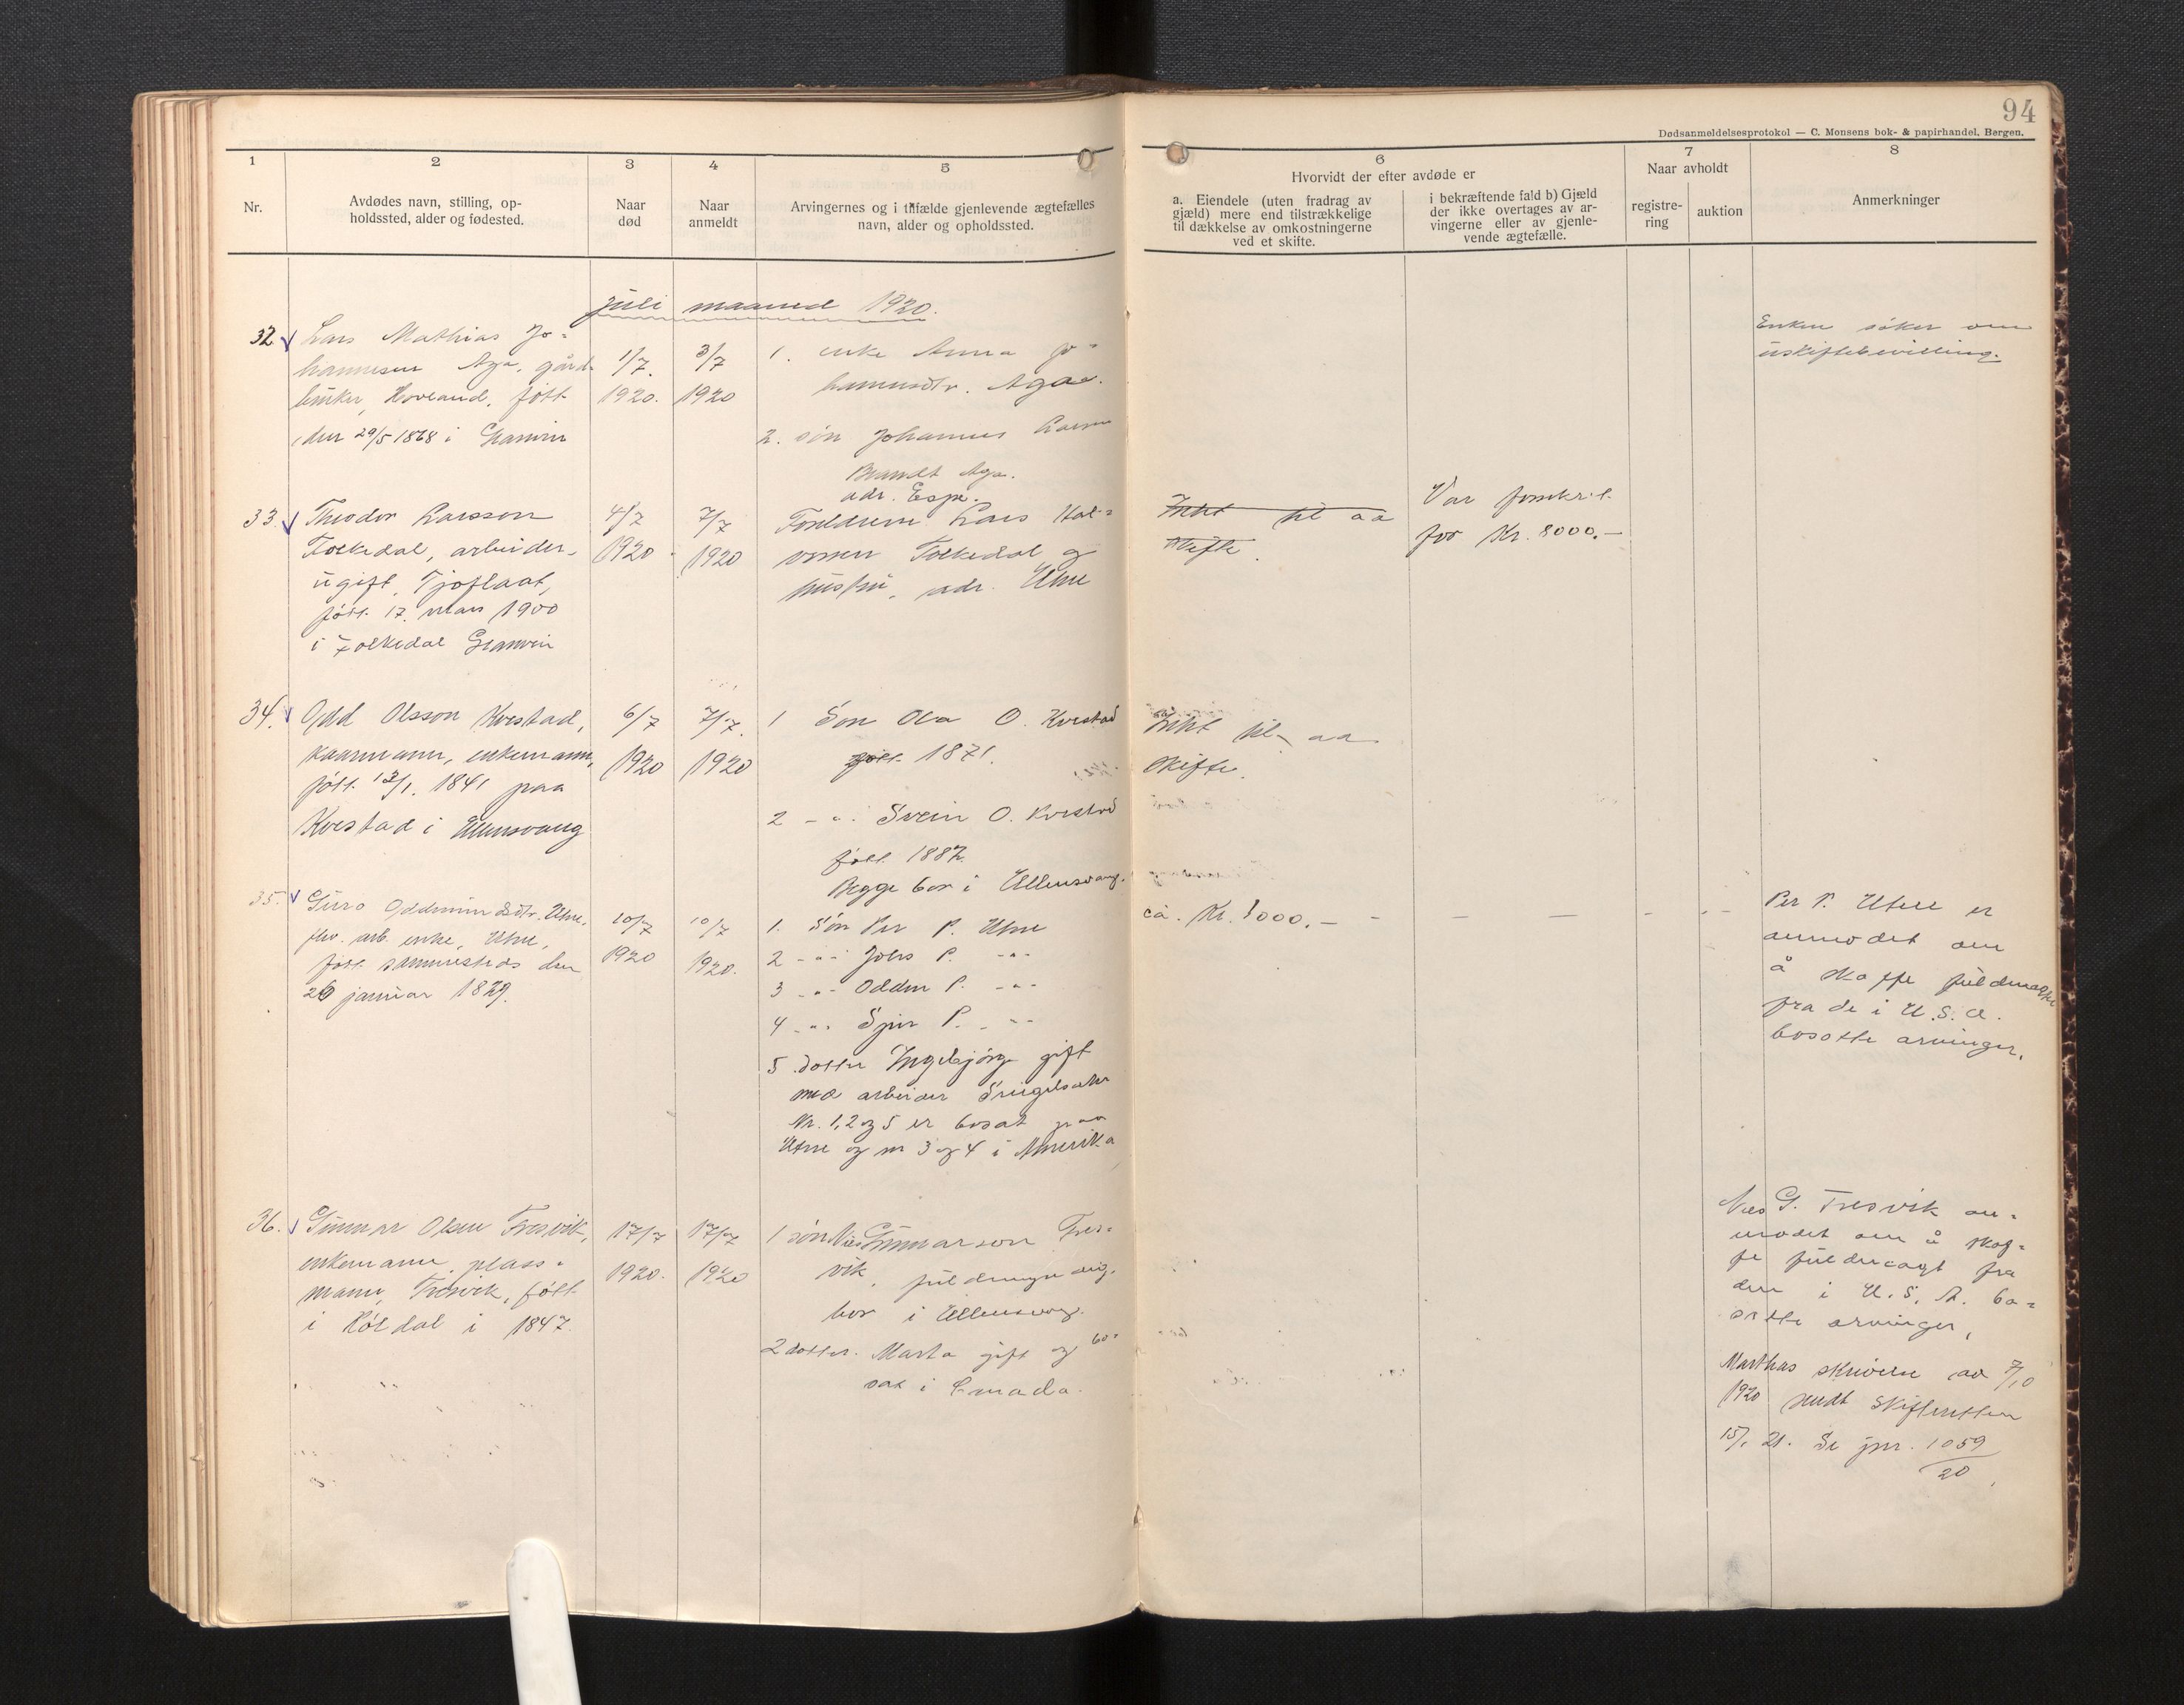 94
Dødsanmeldelsesprotokol — C. Monsens bok- & papirhandel, Bergen.
1
2
3
4
5
6
7
8
Nr.
Avdødes navn, stilling, op-
holdssted, alder og fødested.
Naar
død
Naar
anmeldt
Arvingernes og i tilfælde gjenlevende ægtefælles
navn, alder og opholdssted.
Hvorvidt der efter avdøde er
a. Eiendele (uten fradrag av
gjæld) mere end tilstrækkelige
til dækkelse av omkostningerne
ved et skifte.
i bekræftende fald b) Gjæld
der ikke overtages av ar-
vingerne eller av gjenle-
vende ægtefælle.
Naar avholdt
registre-
ring
auktion
Anmerkninger
Juli maaned 1920.
32
Lars Mathias Jo=
hannesen Aga, gård-
bruker, Hovland, født
den 29/5 1868 i Granvin
1/7.
1920.
3/7
1920
1. enke Anna Jo=
hannesdtr. Aga.
2. søn Johannes Larsen
Brandt Aga.
adr. Espe.
Enken søker om
uskiftebevilling.
33.
Theodor Larsson
Folkedal, arbeider,
ugift, Tjoflaat,
født 17. mars 1900
i Folkedal Granvin
4/7
1920
7/7
1920
Foreldrene Lars Hal=
vorsen Folkedal og
hustru, adr. Utne
Intet til aa
skifte.
Var forsikret
for Kr. 8000.—
34.
Odd Olsson Kvestad,
kaarmann, enkemann,
født 13/1. 1841 paa
Kvestad i Ullensvang
6/7
1920
7/7.
1920
1 Søn Ola O. Kvestad
født 1871.
2 -"- Svein O. Kvestad
født 1887.
Begge bor i Ullensvang.
Intet til aa
skifte.
35.
Guro Oddmundsdtr. Utne,
fhv. arb. enke, Utne,
født sammesteds den
26 januar 1829.
10/7
1920
10/7
1920.
1. Søn Per P. Utne
2 -"- Johs P. -"-
3 -"- Oddm P. -"-
4 -"- P. -"-
5 dotter Ingebjørg gift
med arbeider
Nr. 1, 2 og 5 er bosat paa
Utne og nr 3 og 4 i Amerika
ca. Kr. 1000.— - — — - - -
Per P. Utne er
anmodet om
å skaffe fuldmagt
fra de i U.S.A.
bosatte arvinger.
36.
Gunnar Olsen Tresvik,
enkemann, plass=
mann, Tresvik, født
i Røldal i 1847.
17/7
1920.
17/7
1920
1 søn Nils Gunnarson Tres=
vik, fuldmyndig,
bor i Ullensvang.
2 dotter. Marta gift og bo=
sat i Canada.
Nils G. Tresvik an=
modet om å skaf=
fe fuldmagt fra
den i U.S.A. bo=
satte arvinger,
Marthas skrivelse av 7/10
1920 sendt skifteretten
15/1 21. Se jnr. 1059
20